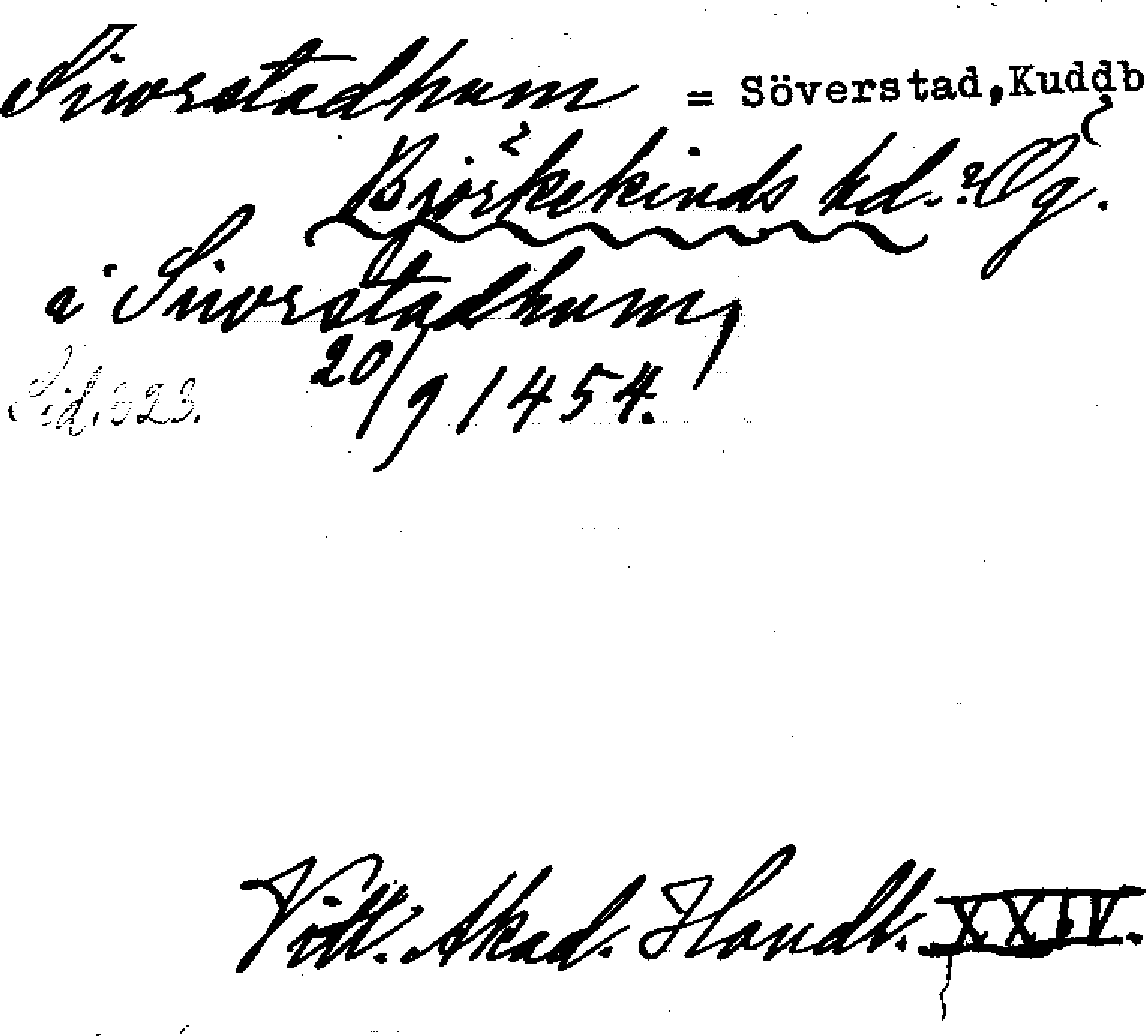 Siworstadhum = Söverstad, Kuddb
Björkekinds hd. ? Ög.
i Siworstadhum,
Sid. 323. 20/9 1454.
Vitt. Akad. Handl. XXIV.